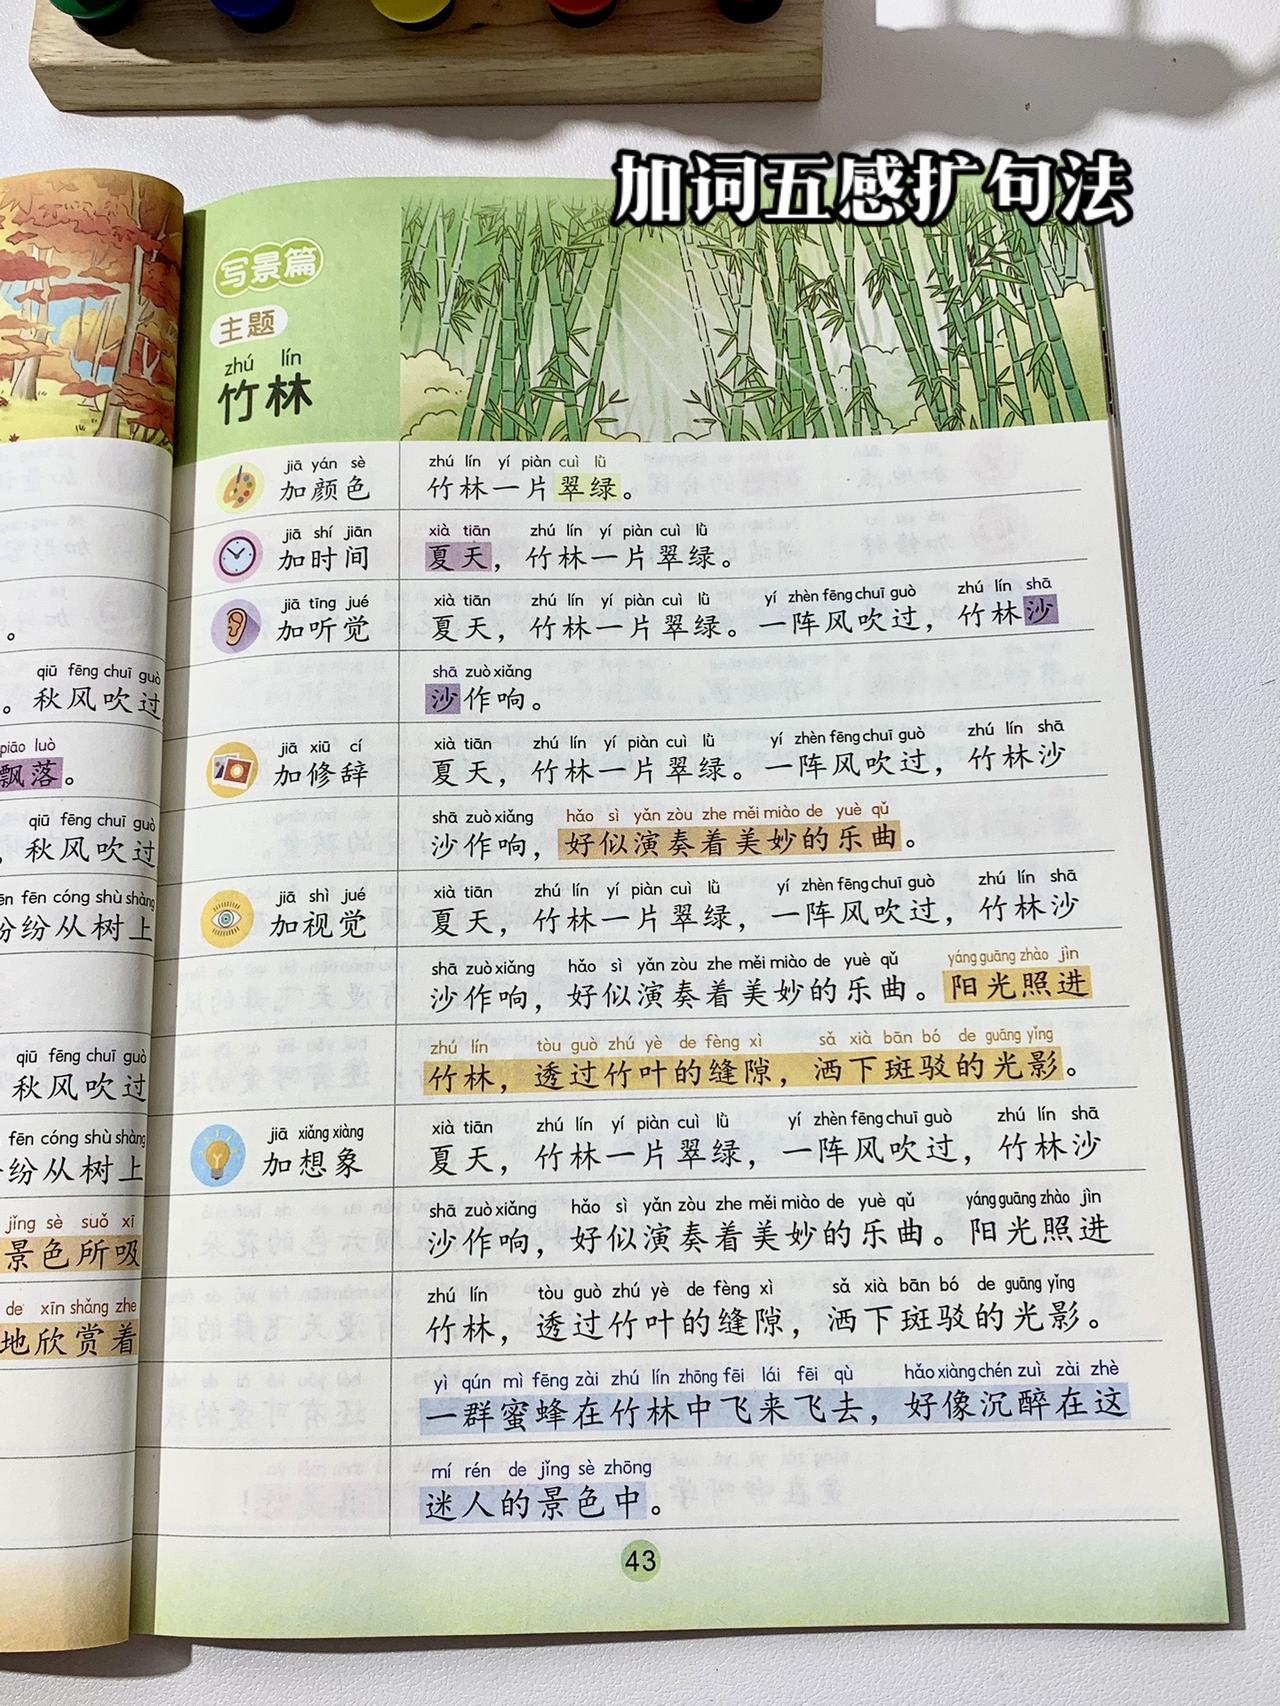 加词五感扩句法
。
qiū fēng chuī guò
。秋风吹过
piāo luò
飘落。
qiū fēng chuī guò
，秋风吹过
fēn cóng shù shàng
纷纷从树上
qiū fēng chuī guò
秋风吹过
fēn cóng shù shàng
纷从树上
jǐng sè suǒ xī
景色所吸
de xīn shǎng zhe
地欣赏着
写景篇
主题
zhú lín
竹林
jiā yán sè
加颜色
zhú lín yí piàn cuì lǜ
竹林一片翠绿。
jiā shí jiān
加时间
xià tiān zhú lín yí piàn cuì lǜ
夏天，竹林一片翠绿。
jiā tīng jué
加听觉
xià tiān zhú lín yí piàn cuì lǜ yí zhèn fēng chuī guò zhú lín shā
夏天，竹林一片翠绿。一阵风吹过，竹林沙
shā zuò xiǎng
沙作响。
jiā xiū cí
加修辞
xià tiān zhú lín yí piàn cuì lǜ yí zhèn fēng chuī guò zhú lín shā
夏天，竹林一片翠绿。一阵风吹过，竹林沙
shā zuò xiǎng hǎo sì yǎn zòu zhe měi miào de yuè qǔ
沙作响，好似演奏着美妙的乐曲。
jiā shì jué
加视觉
xià tiān zhú lín yí piàn cuì lǜ yí zhèn fēng chuī guò zhú lín shā
夏天，竹林一片翠绿，一阵风吹过，竹林沙
shā zuò xiǎng hǎo sì yǎn zòu zhe měi miào de yuè qǔ yáng guāng zhào jìn
沙作响，好似演奏着美妙的乐曲。阳光照进
zhú lín tòu guò zhú yè de fèng xì sǎ xià bān bó de guāng yǐng
竹林，透过竹叶的缝隙，洒下斑驳的光影。
jiā xiǎng xiàng
加想象
xià tiān zhú lín yí piàn cuì lǜ yí zhèn fēng chuī guò zhú lín shā
夏天，竹林一片翠绿，一阵风吹过，竹林沙
shā zuò xiǎng hǎo sì yǎn zòu zhe měi miào de yuè qǔ yáng guāng zhào jìn
沙作响，好似演奏着美妙的乐曲。阳光照进
zhú lín tòu guò zhú yè de fèng xì sǎ xià bān bó de guāng yǐng
竹林，透过竹叶的缝隙，洒下斑驳的光影。
yì qún mì fēng zài zhú lín zhōng fēi lái fēi qù hǎo xiàng chén zuì zài zhè
一群蜜蜂在竹林中飞来飞去，好像沉醉在这
mí rén de jǐng sè zhōng
迷人的景色中。
43